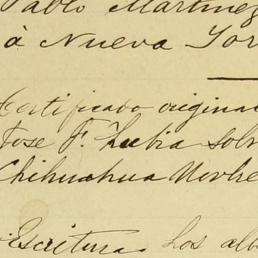 Pablo Martinez
à Nueva Yor
Certificado origina
Jose F. sob
Chihuahua Novbe
Escritura Los alb